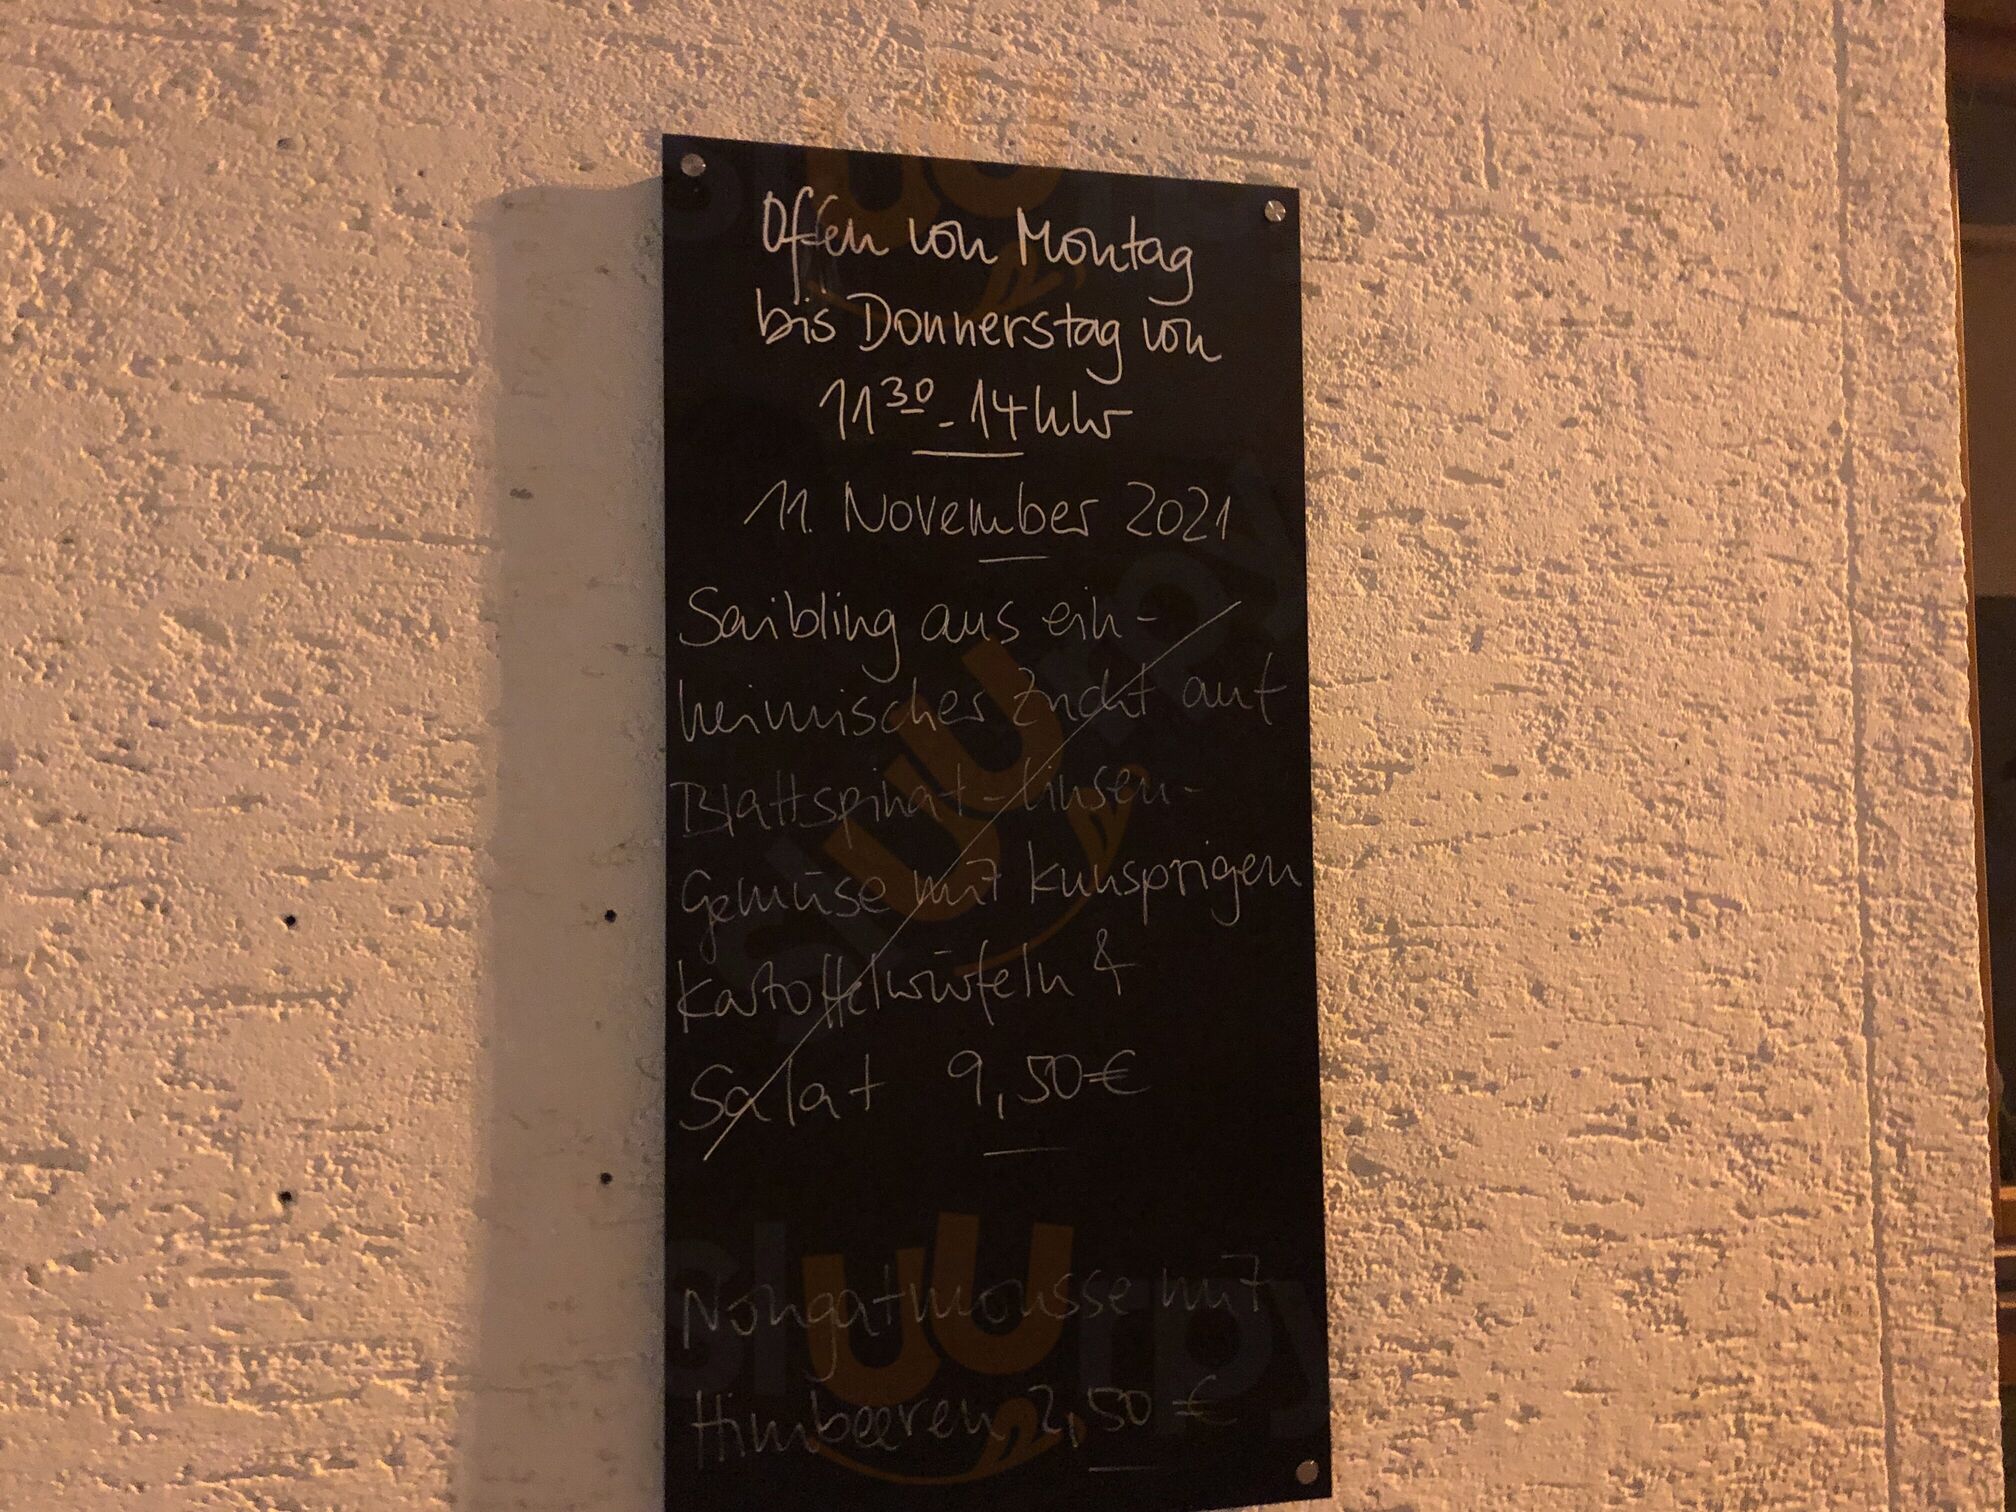 Offen von Montag
bis Donnerstag von
11³⁰ - 14 Uhr
11. November 2021
Saibling aus ein-
heimischer Zucht auf
Blattspinat-Linsen-
Gemüse mit knusprigen
Kartoffelwürfeln &
Salat 9,50€
Nougatmousse mit
Himbeeren 2,50 €
sluurpy
sluurpy
sluurpy